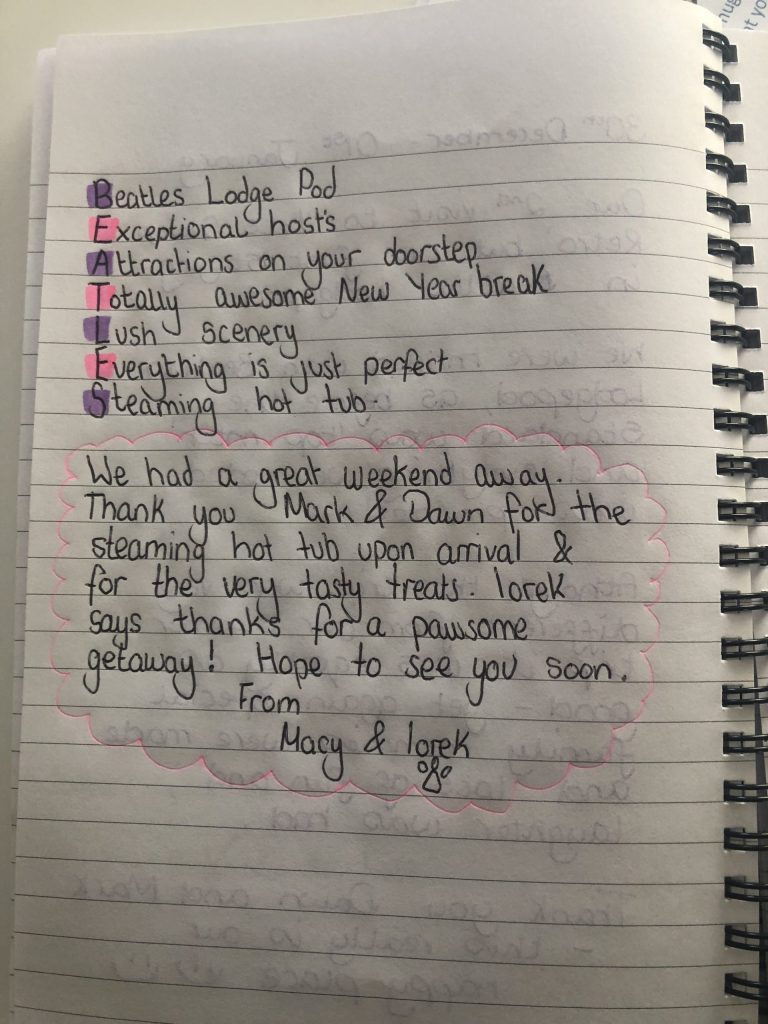 Beatles Lodge Pod
Exceptional host's
Attractions on your doorstep
Totally awesome New Year break
Lush scenery
Everything is just perfect
Steaming hot tub.
We had a great weekend away.
Thank you Mark & Dawn for the
steaming hot tub upon arrival &
for the very tasty treats. lorek
says thanks for a pawsome
getaway! Hope to see you soon.
From
Macy & lorek